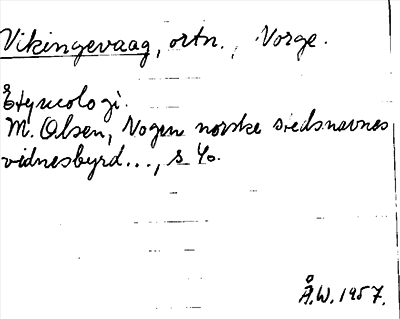 Vikingevaag, ortn., Norge.
Etymologi.
M. Olsen, Nogen norske stedsnavnes
vidnesbyrd..., s 40.
Å.W. 1957.